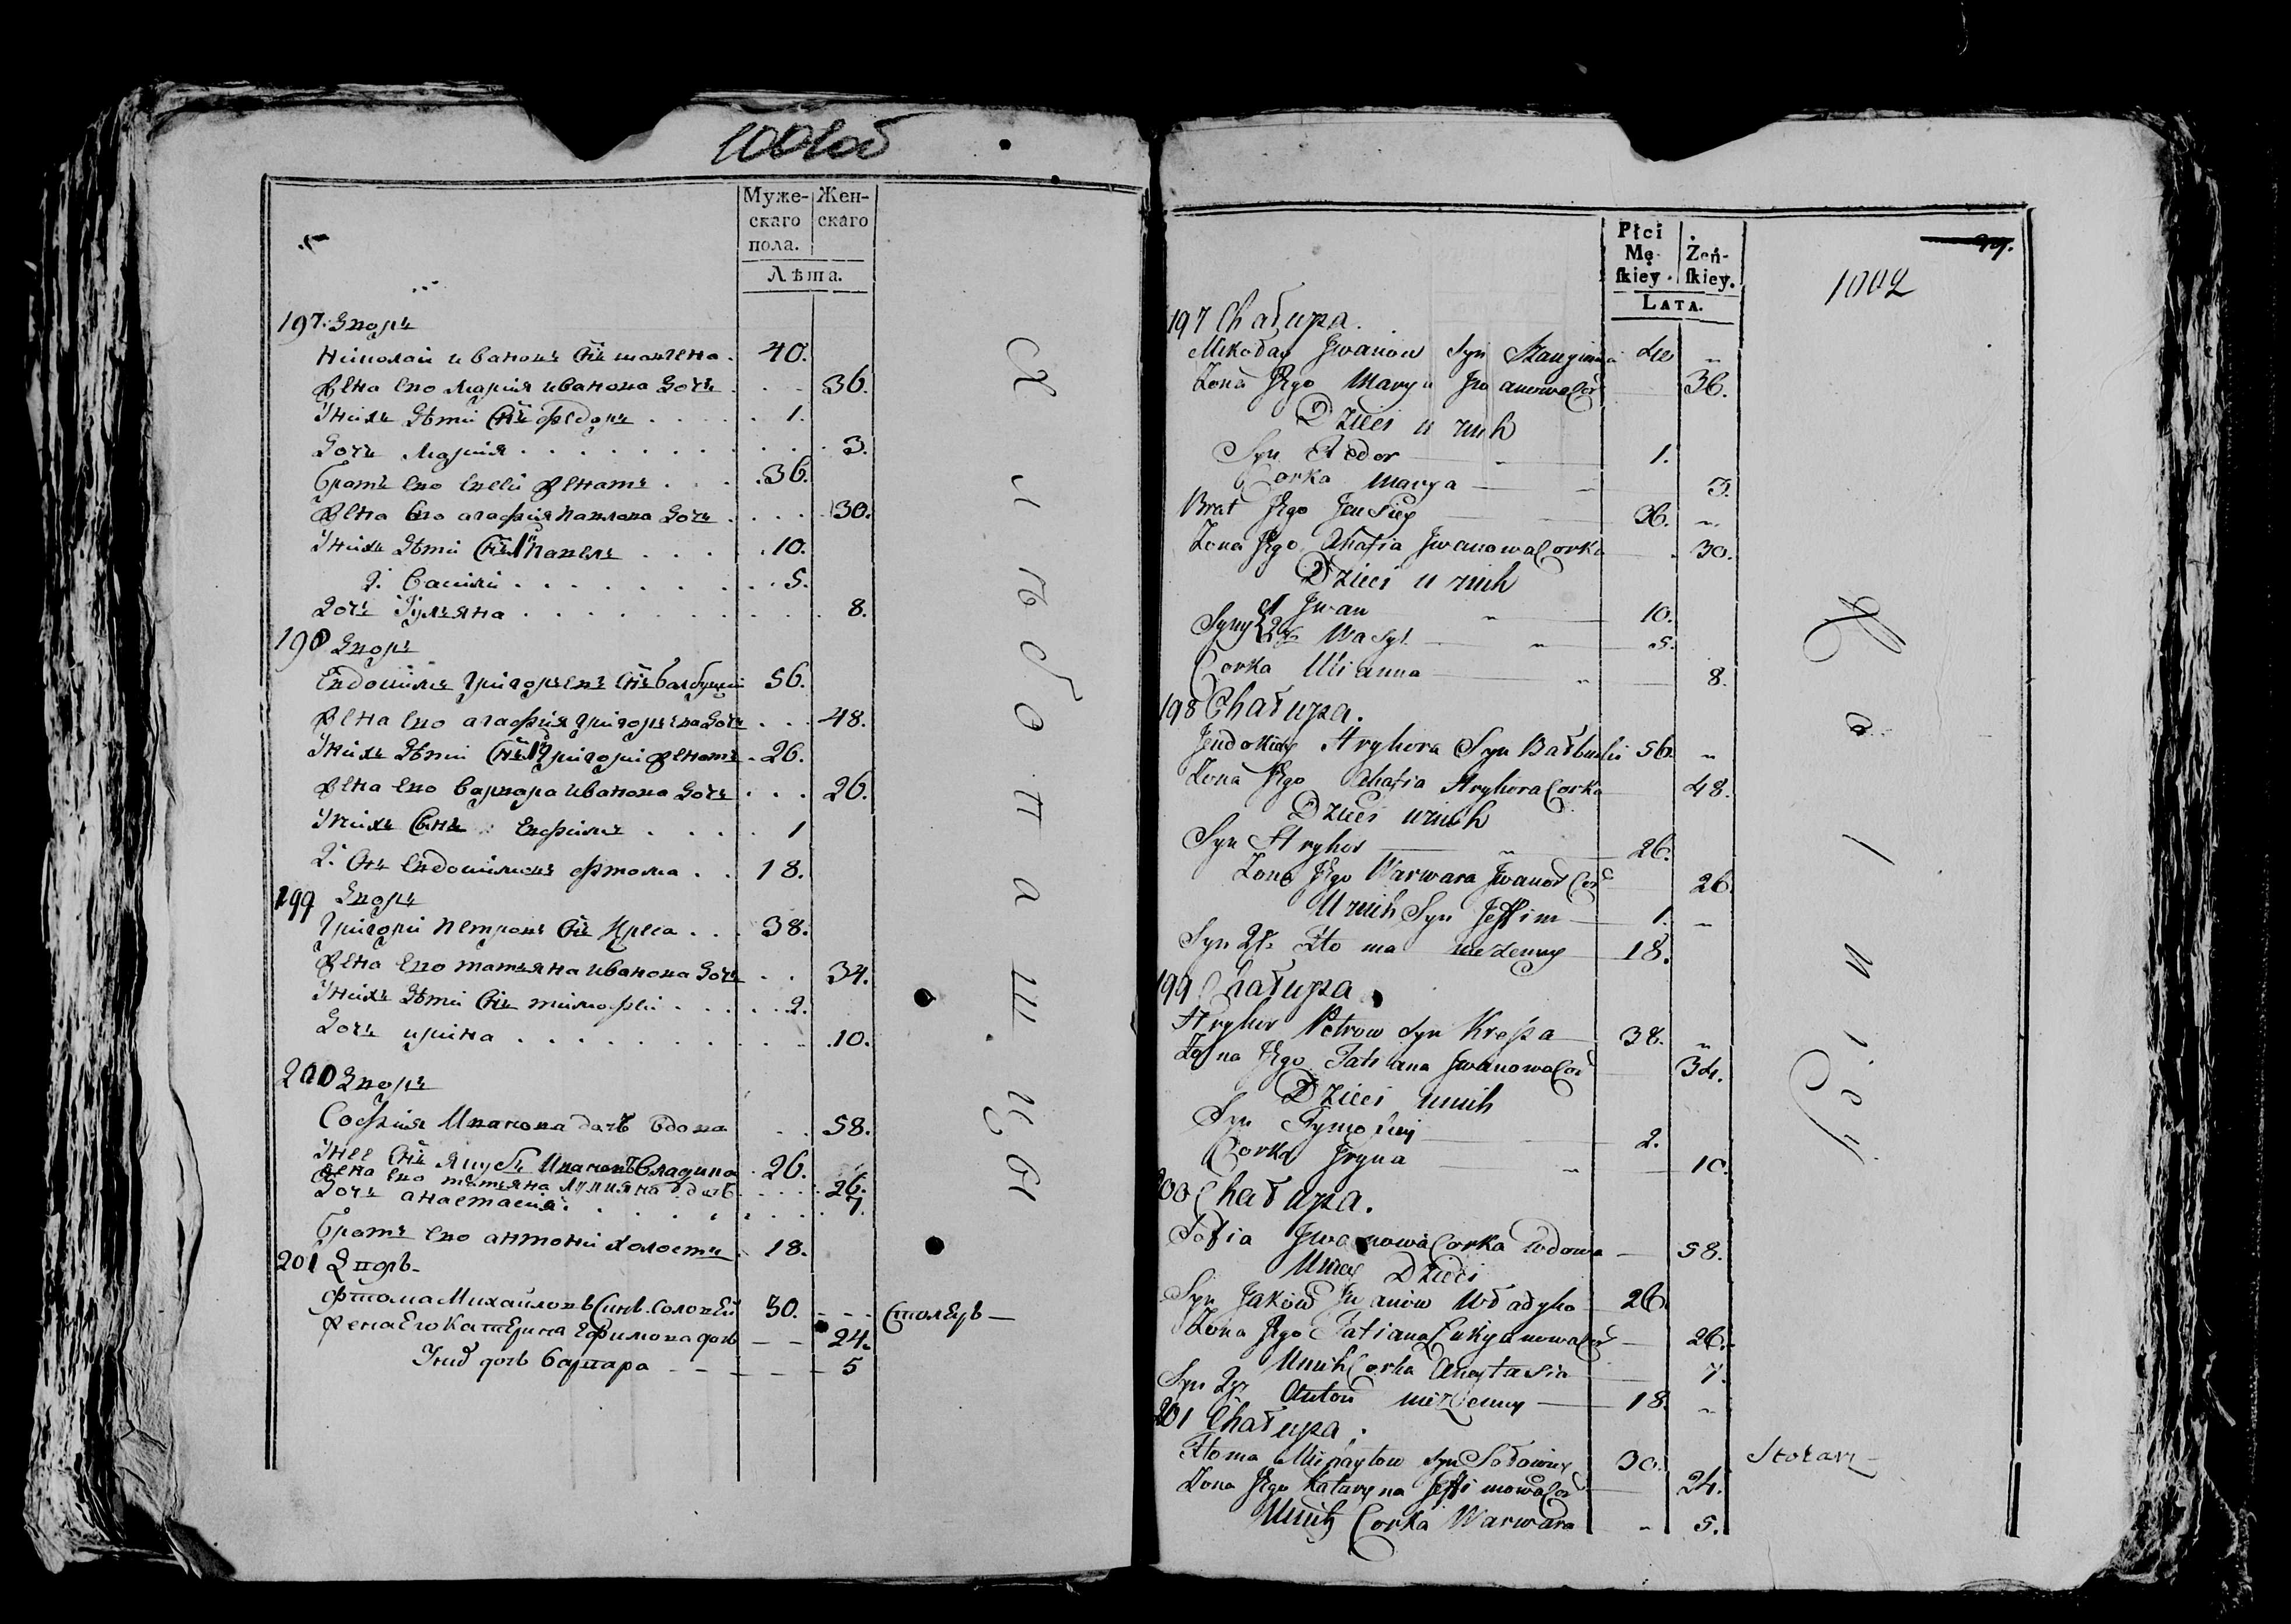 1001об
Муже-
скаго
пола.
Жен-
скаго
Лѣта.
197. Дворъ
Николай Ивановъ Снъ 40.
Жена его Мария Иванова дочь 36.
У нихъ дѣти Снъ Федоръ 1.
Дочь Мария 3.
Братъ его Евсей женатъ 36.
Жена его Агафия Павлова дочь 30.
У нихъ дѣти Снъ 1й Павелъ 10.
2. Василий 5.
Дочь Улияна 8.
198 Дворъ
Евдокимъ Григорьевъ Снъ 56.
Жена его Агафия Григорьева дочь 48.
У нихъ дѣти Снъ 1й Григорий женатъ 26.
Жена его Варвара Иванова дочь 26.
У нихъ Сынъ Ефимъ 1
2. Снъ Евдокимовъ Фтома 18.
199 Дворъ
Григорий Петровъ Снъ Креса 38.
Жена его Татьяна Иванова дочь 34.
У нихъ дѣти Снъ Тимофей 2.
Дочь Ирина 10.
200 Дворъ
София Иванова дочь вдова 58.
У нее Снъ Якубъ Ивановъ Владика 26.
Жена его Татьяна Лукияна дочь 26.
Дочь Анастасия 7.
Братъ его Антоний холостъ 18.
201 Дворъ
Фтома Михайловъ Синъ Соловей 30.
Жена Его Катерина Ефимова дочь 24.
У них дочь Варвара 5
Хлѣбопашцы
Столяръ
Płci
Mę-
skiey.
Żeń-
skiey.
LATA.
99.
1002
197 Chałupa.
Mikołay Jwanow Syn 40 "
Żona Jego Marya Jwanowa Cor 36.
Dzieci u nich
Syn Fiedor 1.
Corka Marya 3.
Brat Jego Jewsiey 36. "
Żona Jego Ahafia Jwanowa Corka 30.
Dzieci u nich
Syny 1 Jwan 10.
2gi Wasyl 5.
Corka Ulianna 8.
198 Chałupa.
Jewdokim Hryhora Syn 56. "
Żona Jego Ahafia Hryhora Corka 48.
Dzieci u nich
Syn Hryhor 26.
Żona Jego Warwara Jwanow Cor 26.
U nich Syn Jeffim 1. "
Syn 2gi Ftoma nieżenny 18.
199 Chałupa
Hryhor Petrow Syn Kresa 38. "
Żona Jego Tatiana Jwanowa Cor 34.
Dzieci u nich
Syn Tymofiey 2.
Corka Jryna 10.
200 Chałupa.
Sofia Jwanowa Corka wdowa 58.
U niey Dzieci
Syn Jakow Jwanow Władyka 26
Żona Jego Tatiana Łukyanowa Cor 26.
U nich Corka Anastasia 7.
Syn 2gi Anton nieżenny 18. "
201 Chałupa.
Ftoma Michayłow Syn Sołowiey 30.
Żona Jego Kataryna Jeffimowa Cor 24.
U nich Corka Warwara " 5.
Rolnicy
Stolarz